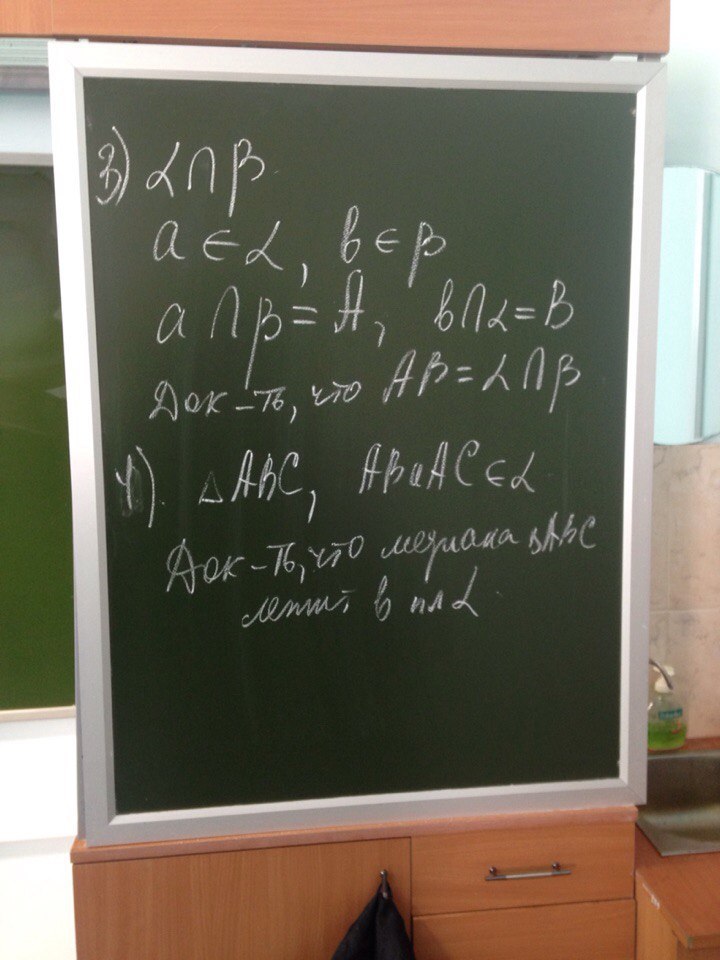 3) α∩β
a∈α, b∈β
a∩β=A, b∩α=B
Док-ть, что AB=α∩β
4). △ABC, AB и AC∈α
Док-ть, что медиана △ABC
лежит в пл α